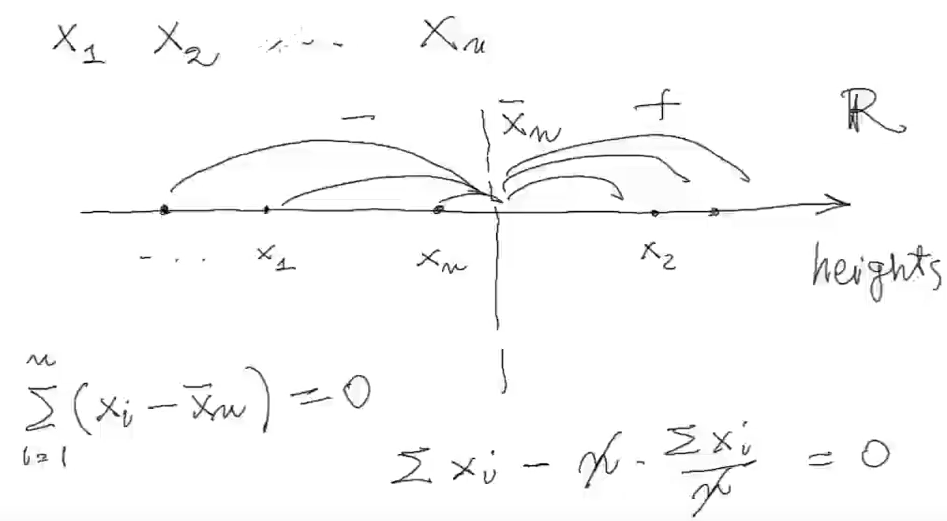 x₁ x₂ ..... xₙ
− x̄ₙ + ℝ
-... x₁ xₙ x₂
heights
n
∑ (xᵢ − x̄ₙ) = 0
i=1
∑ xᵢ − n · ∑ xᵢ / n = 0